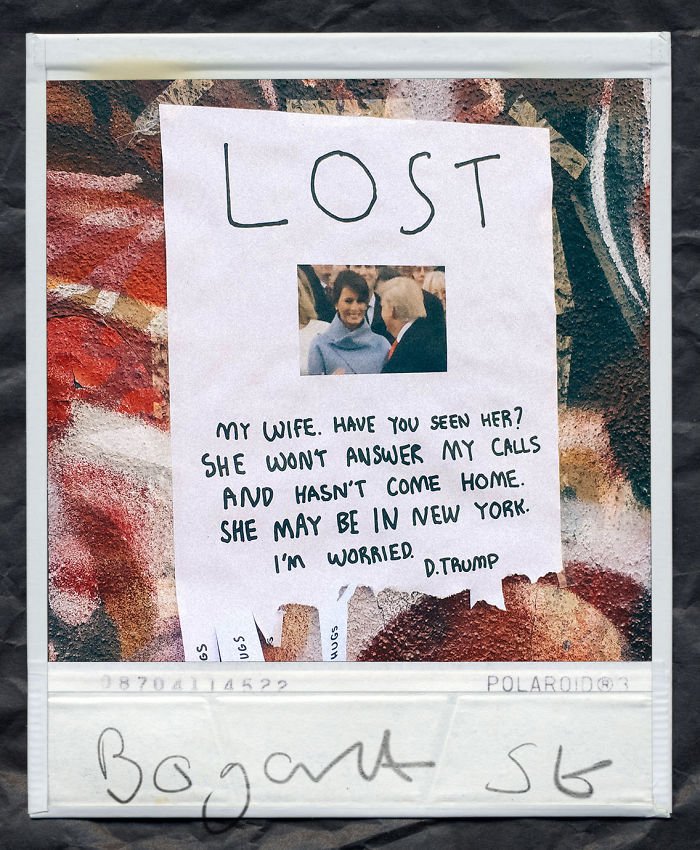 LOST
MY WIFE. HAVE YOU SEEN HER?
SHE WON'T ANSWER MY CALLS
AND HASN'T COME HOME.
SHE MAY BE IN NEW YORK.
I'M WORRIED.
D.TRUMP
GS
UGS
S
HUGS
08704114522
POLAROID®3
Bogart St